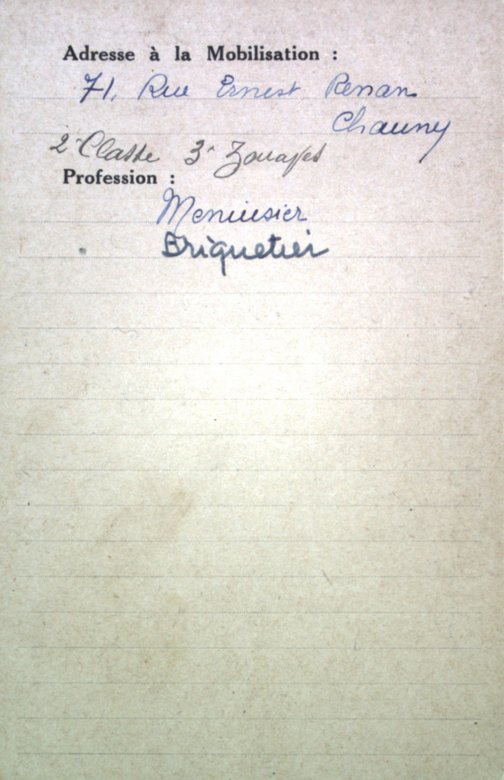 Adresse à la Mobilisation :
71, Rue Ernest Renan
Chauny
2e Classe 3e Zouaves
Profession :
Menuisier
Briquetier